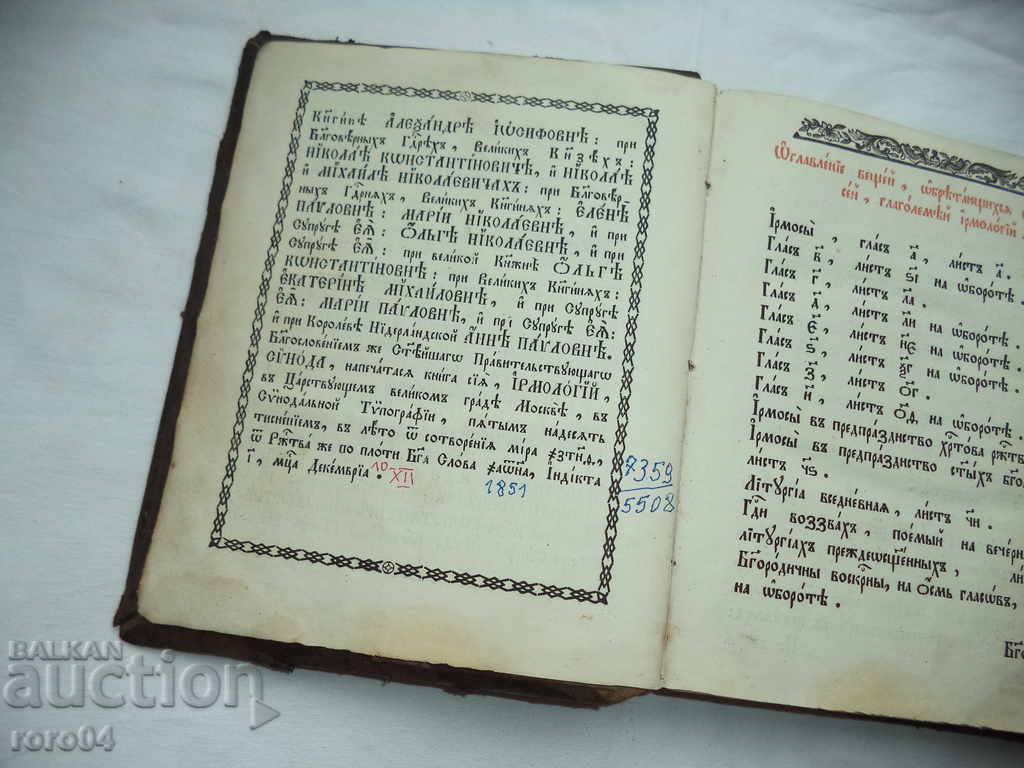 Кнги́нѣ А҆леѯа́ндрѣ І҆ѡ́сифовнѣ: при
Бл҃говѣ́рныхъ Гдⷭ҇рѣхъ, Вели́кихъ Кнзѣхъ:
Нїкола́ѣ Кѡнстантїновичѣ, и҆ Нїкола́ѣ
и҆ Мїхаи́лѣ Нїкола́евичахъ: при Бл҃говѣ́р-
ныхъ Гдⷭ҇рняхъ, Вели́кихъ Кнги́няхъ: Е҆ле́нѣ
Па́ѵловнѣ: Марі́и Нїкола́евнѣ, и҆ при
Сꙋпрꙋ́гѣ Е҆ѧ̀: Ѻ҆́льгѣ Нїкола́евнѣ, и҆ при
Сꙋпрꙋ́гѣ Е҆ѧ̀: при вели́кой Кнѧжнѣ̀ Ѻ҆́льгѣ
Кѡнстантїновнѣ: при Вели́кихъ Кнги́няхъ:
Е҆катерїнѣ Мїха́йловнѣ, и҆ при Сꙋпрꙋ́гѣ
Е҆ѧ̀: Марі́и Па́ѵловнѣ, и҆ при Сꙋпрꙋ́гѣ Е҆ѧ̀:
и҆ при Короле́вѣ Нїдерла́ндской А҆́ннѣ Па́ѵловнѣ.
Бл҃гослове́нїемъ же Ст҃ѣ́йшагѡ Прави́тельствꙋющагѡ
Сѷно́да, напеча́тасѧ кни́га сїѧ̀, І҆рмоло́гїй,
въ Ца́рствꙋющемъ вели́комъ гра́дѣ Москвѣ̀, въ
Сѷнода́льной Тѷпогра́фїи, пѧ́тымъ на́десѧть
тисне́нїемъ, въ лѣ́то ѿ сотворе́нїѧ мі́ра ҂зтн҃ѳ,
ѿ Рж҇тва̀ же по пло́ти Бг҃а Сло́ва ҂аѡн҃а, І҆ндїкта
і҃, мцⷭ҇а Деке́мврїа. 10
XII
1851
7359
5508
Ѡ҆главле́нїе веще́й, ѡ҆брѣта́ющихсѧ
се́й, глаго́лемѣй І҆рмоло́гїй
І҆рмосы̀, гла́съ а҃, ли́стъ а҃.
Гла́съ в҃, ли́стъ ѕ҃і на ѡ҆боро́тѣ.
Гла́съ г҃, ли́стъ л҃а.
Гла́съ д҃, ли́стъ л҃и на ѡ҆боро́тѣ.
Гла́съ є҃, ли́стъ н҃є на ѡ҆боро́тѣ.
Гла́съ ѕ҃, ли́стъ на ѡ҆боро́тѣ.
Гла́съ з҃, ли́стъ ѻ҃г.
Гла́съ и҃, ли́стъ ѻ҃д, на ѡ҆боро́тѣ.
І҆рмосы̀ въ предпра́зднство хрⷭ҇то́ва рж҇тв
І҆рмосы̀ въ предпра́зднство ст҃ы́хъ бг҃о
ли́стъ ч҃ѕ.
Лїтꙋргі́а вседне́внаѧ, ли́стъ ч҃и.
Гдⷭ҇и воззва́хъ, пое́мый на вече́рн
лїтꙋргі́ахъ преждеѡсщ҃е́нныхъ, ли
Бг҃оро́дичны воскрⷭ҇ны, на ѻ҆́смь гласѡ́въ,
на ѡ҆боро́тѣ.
Бг҃о
BALKAN
auction
roro04